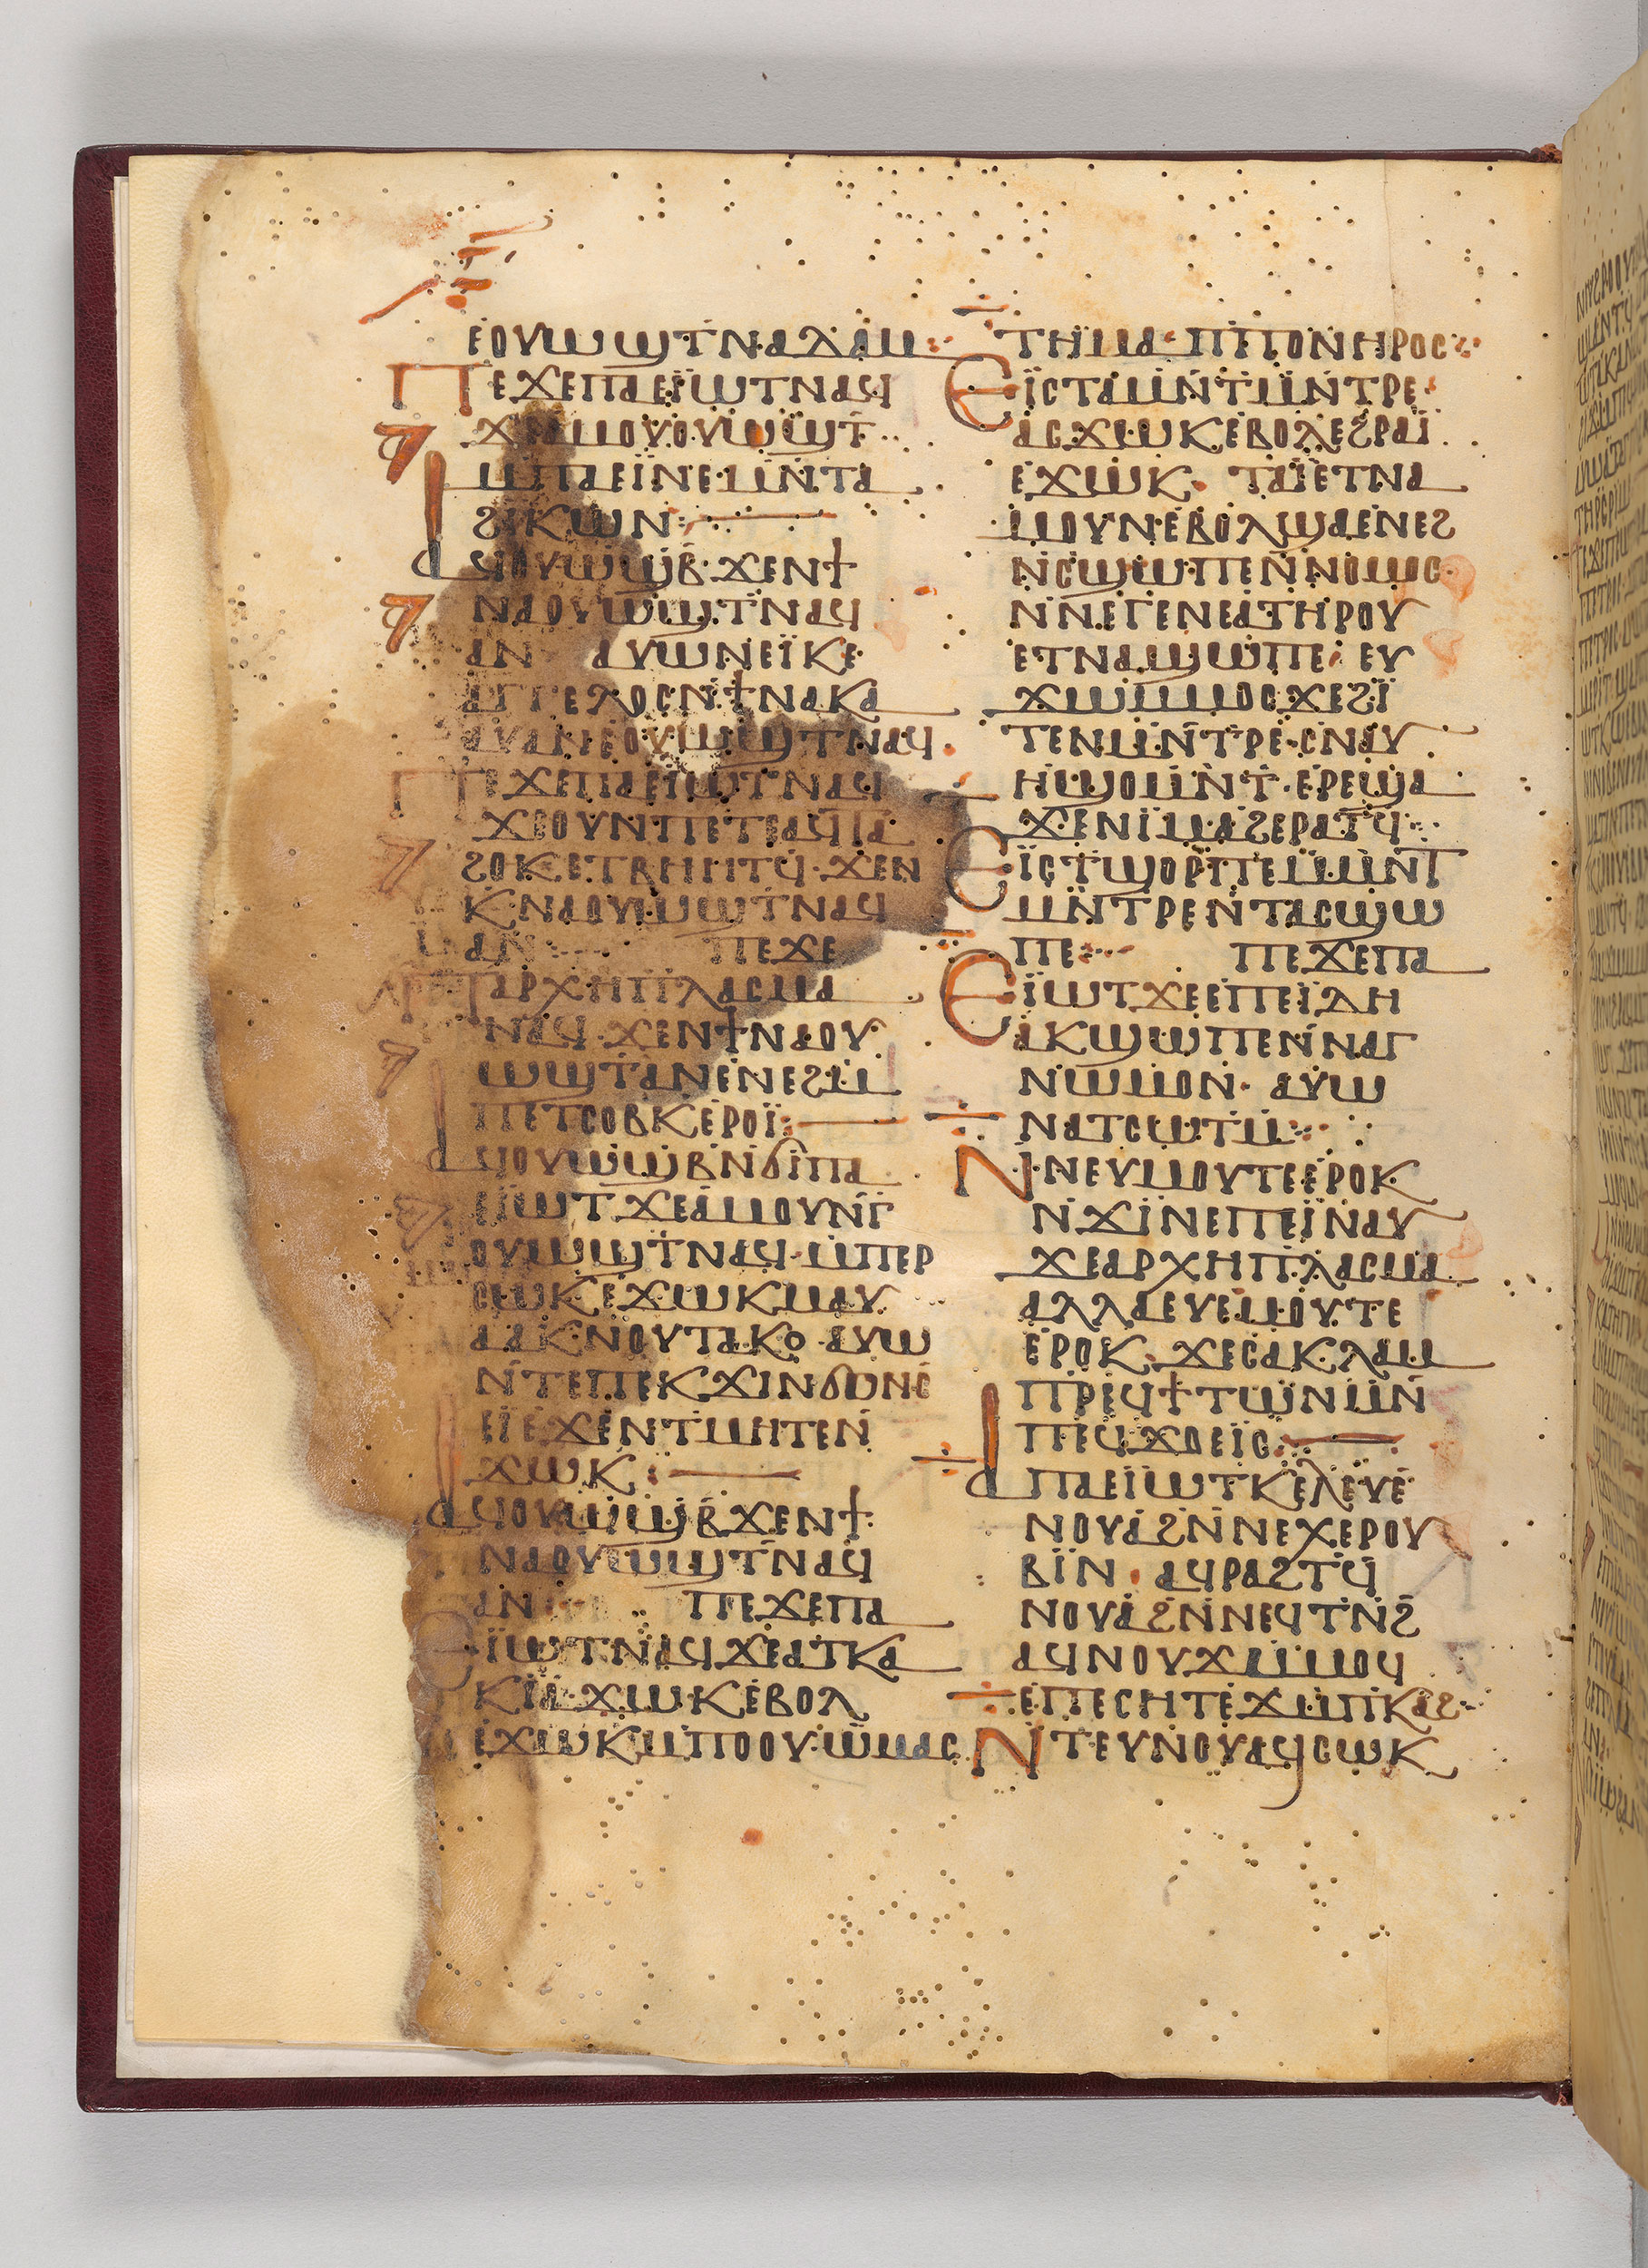 ⲉⲟⲩⲱϣⲧ ⲛⲁⲇⲁⲙ:
ⲡⲉϫⲉ ⲡⲁⲉⲓⲱⲧ ⲛⲁϥ
ϫⲉ ⲁⲙⲟⲩ ⲟⲩⲱϣⲧ
ⲙ̄ⲡⲁⲉⲓⲛⲉ ⲙⲛ̄ ⲧⲁ
ϩⲓⲕⲱⲛ:
ⲁϥⲟⲩⲱϣⲃ̄ ϫⲉ ⲛϯ
ⲛⲁⲟⲩⲱϣⲧ̄ ⲛⲁϥ
ⲁⲛ ⲁⲩⲱ ⲛⲉⲓ̈ⲕⲉ
ⲁⲅⲅⲉⲗⲟⲥ ⲛ̄ϯⲛⲁⲕⲁ
ⲁⲩ ⲁⲛ ⲉⲟⲩⲱϣⲧ ⲛⲁϥ
ⲡⲉϫⲉ ⲡⲁⲉⲓⲱⲧ ⲛⲁϥ
ϫⲉ ⲟⲩⲛ ⲡⲉⲧⲉⲁϥⲧⲁ
ϩⲟⲕ ⲉⲧⲃⲏⲏⲧϥ̄ ϫⲉ ⲛ
ⲕ̄ⲛⲁⲟⲩⲱϣⲧ̄ ⲛⲁϥ
ⲁⲛ ⲡⲉϫⲉ
ⲧⲁⲣⲭⲏⲡⲗⲁⲥⲙⲁ
ⲛⲁϥ ϫⲉ ⲛϯⲛⲁⲟⲩ
ⲱϣⲧ̄ ⲁⲛ ⲉⲛⲉϩ ⲙ̄
ⲡⲉⲧⲥⲟⲃⲕ ⲉⲣⲟⲓ̈:
ⲁϥⲟⲩⲱϣⲃ ⲛ̄ϭⲓ ⲡⲁ
ⲉⲓ̈ⲱⲧ ϫⲉ ⲁⲙⲟⲩ ⲛⲅ̄
ⲟⲩⲱϣⲧ̄ ⲛⲁϥ ⲙ̄ⲡⲉⲣ
ⲥⲱⲕ ⲉϫⲱⲕ ⲙⲁⲩ
ⲁⲁⲕ ⲛⲟⲩⲧⲁⲕⲟ ⲁⲩⲱ
ⲛ̄ⲧⲉ ⲡⲉⲕϫⲓⲛϭⲟⲛⲥ̄
ⲉⲓ ⲉϫⲉⲛ ⲧⲙⲏⲧⲉ ⲛ̄
ϫⲱⲕ:
ⲁϥⲟⲩⲱϣⲃ̄ ϫⲉ ⲛϯ
ⲛⲁⲟⲩⲱϣⲧ̄ ⲛⲁϥ
ⲁⲛ ⲡⲉϫⲉ ⲡⲁ
ⲉⲓ̈ⲱⲧ ⲛⲁϥ ϫⲉ ⲁⲧⲕⲁ
ⲕⲓⲁ ϫⲱⲕ ⲉⲃⲟⲗ
ⲉϫⲱⲕ ⲙ̄ⲡⲟⲟⲩ ⲱ̄ ⲙⲁⲥ
ⲧⲏⲙⲁ ⲡⲉⲡⲟⲛⲏⲣⲟⲥ:
ⲉⲓ̈ⲥ ⲧⲁⲙⲛ̄ⲧⲙⲛ̄ⲧⲣⲉ
ⲁⲥϫⲱⲕ ⲉⲃⲟⲗ ⲉϩⲣⲁⲓ̈
ⲉϫⲱⲕ ⲧⲁⲓ̈ ⲉⲧⲛⲁ
ⲙⲟⲩⲛ ⲉⲃⲟⲗ ϣⲁ ⲉⲛⲉϩ
ⲛ̄ⲥϣⲱⲡⲉ ⲛ̄ⲛⲟⲙⲟⲥ
ⲛ̄ⲛⲉⲅⲉⲛⲉⲁ ⲧⲏⲣⲟⲩ
ⲉⲧⲛⲁϣⲱⲡⲉ ⲉⲩ
ϫⲱ ⲙ̄ⲙⲟⲥ ϫⲉ ϩⲓ̈
ⲧⲉⲛ ⲙⲛ̄ⲧⲣⲉ ⲥⲛⲁⲩ
ⲏ ϣⲟⲙⲛ̄ⲧ ⲉⲣⲉ ϣⲁ
ϫⲉ ⲛⲓⲙ ⲁϩⲉⲣⲁⲧϥ̄
ⲉⲓ̈ⲥ ⲧϣⲟⲣⲡⲉ ⲙ̄ⲙⲛ̄ⲧ
ⲙⲛ̄ⲧⲣⲉ ⲛ̄ⲧⲁⲥϣⲱ
ⲡⲉ: ⲡⲉϫⲉ ⲡⲁ
ⲉⲓ̈ⲱⲧ ϫⲉ ⲉⲡⲉⲓ̈ⲇⲏ
ⲁⲕϣⲱⲡⲉ ⲛ̄ⲛⲁⲅ
ⲛⲱⲙⲟⲛ ⲁⲩⲱ
ⲛⲁⲧⲥⲱⲧⲙ̄
ⲛ̄ⲛⲉⲩⲙⲟⲩⲧⲉ ⲉⲣⲟⲕ
ⲛ̄ϫⲓⲛ ⲉⲡⲉⲓ̈ⲛⲁⲩ
ϫⲉ ⲁⲣⲭⲏⲡⲗⲁⲥⲙⲁ
ⲁⲗⲗⲁ ⲉⲩⲉⲙⲟⲩⲧⲉ
ⲉⲣⲟⲕ ϫⲉ ⲥⲁⲕⲗⲁⲙ
ⲡⲣⲉϥϯⲧⲱⲛ ⲙⲛ̄
ⲡⲉϥϫⲟⲉⲓⲥ:
ⲁ ⲡⲁⲉⲓ̈ⲱⲧ ⲕⲉⲗⲉⲩⲉ
ⲛⲟⲩⲁ ϩⲛ̄ ⲛⲉⲭⲉⲣⲟⲩ
ⲃⲓⲛ ⲁϥⲣⲁϩⲧϥ̄
ⲛⲟⲩⲁ ϩⲛ̄ ⲛⲉϥⲧⲛϩ̄
ⲁϥⲛⲟⲩϫ ⲙ̄ⲙⲟϥ
ⲉⲡⲉⲥⲏⲧ ⲉϫⲙ̄ ⲡⲕⲁϩ
ⲛ̄ⲧⲉⲩⲛⲟⲩ ⲁϥⲥⲱⲕ